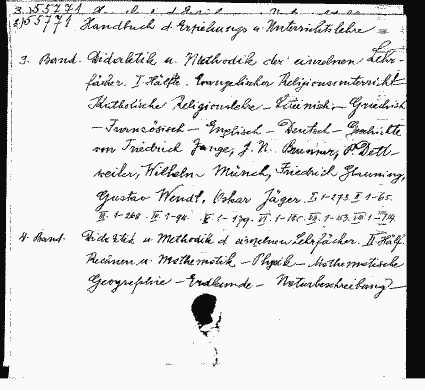 2) 55771 Handbuch d Erziehungs u Unterrichtslehre =
3. Band. Didaktik u. Methodik der einzelnen Lehr-
fächer. I. Hälfte. Evangelischer Religionsunterricht
Katholische Religionslehre – Lateinisch – Griechisch
– Französisch – Englisch – Deutsch – Geschichte
von Friedrich Zange, J. N. Brunner, P. Dett-
weiler, Wilhelm Münch, Friedrich Glauning,
Gustav Wendt, Oskar Jäger. I 1-273. II 1-65.
III 1-268. IV 1-94. V 1-179. VI 1-
4. Band. Didaktik u Methodik d einzelnen Lehrfächer. II. Hälf.
Rechnen u. Mathematik – Physik – Mathematische
Geographie – Erdkunde – Naturbeschreibung